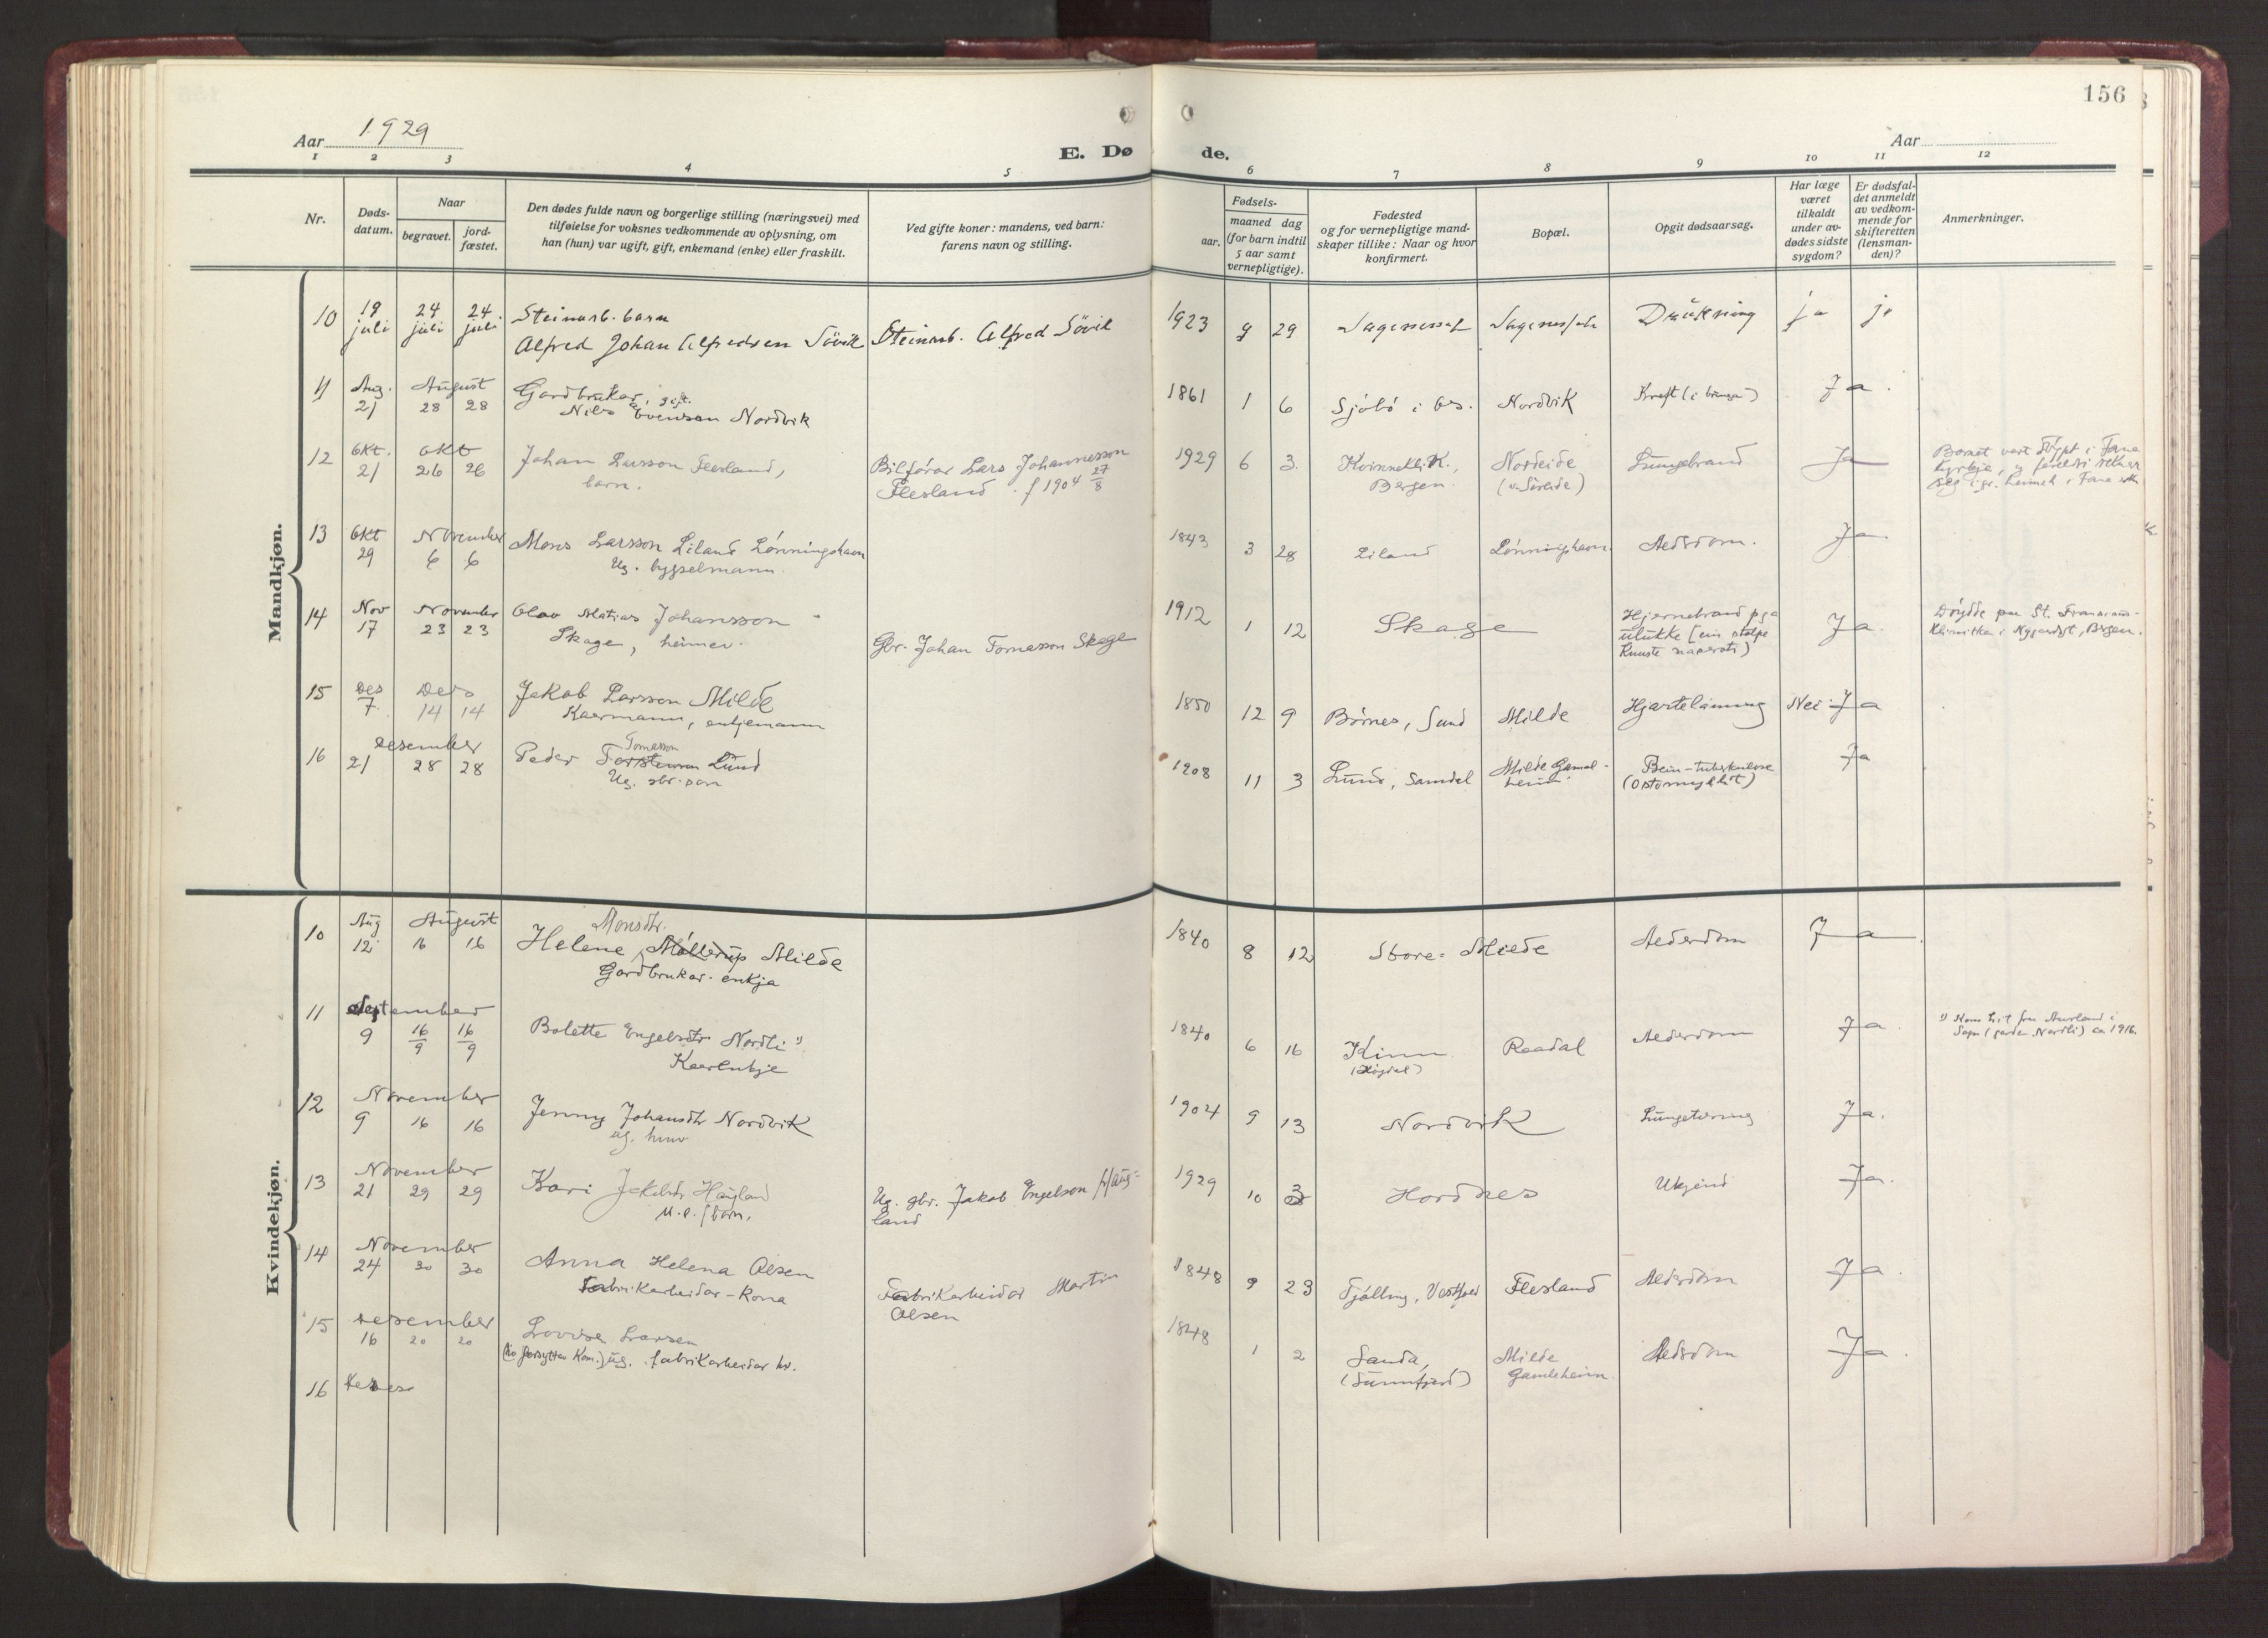 156
Aar 1929
E. Døde.
Aar
1 2 3 4 5 6 7 8 9 10 11 12
Nr.
Døds-
datum.
Naar
begravet.
jord-
fæstet.
Den dødes fulde navn og borgerlige stilling (næringsvei) med
tilføielse for voksnes vedkommende av oplysning, om
han (hun) var ugift, gift, enkemand (enke) eller fraskilt.
Ved gifte koner: mandens, ved barn:
farens navn og stilling.
Fødsels-
aar.
maaned dag
(for barn indtil
5 aar samt
vernepligtige).
Fødested
og for vernepligtige mand-
skaper tillike: Naar og hvor
konfirmert.
Bopæl.
Opgit dødsaarsag.
Har læge
været
tilkaldt
under av-
dødes sidste
sygdom?
Er dødsfal-
det anmeldt
av vedkom-
mende for
skifteretten
(lensman-
den)?
Anmerkninger.
Mandkjøn.
10 19 juli 24 juli 24 juli
Steinarb. barn
Alfred Johan Alfredsen Sövik
Steinarb. Alfred Sövik
1923 9 29
Drukning
ja ja
11 Aug. 21 August 28 28
Gardbrukar, gift.
Nils Evenson Nordvik
1861 1 6
Sjöbö i Os. Nordvik
Kreft (i bringa)
Ja.
12 Okt. 21 Okt 26 26
Johan Larsson Flesland,
barn.
Bilförar Lars Johannesson
Flesland. f 1904 27/8
1929 6 3.
Kvinnekli.K.,
Bergen.
Nordeide
Lungebrand
Ja
Barnet vart döypt i Fana
13 Okt 29 November 6 6
Mons Larsson Liland Lönningshavn
Ug. bygselmann.
1843 3 28
Liland Lönningshavn.
Alderdom.
Ja.
14 Nov 17 November 23 23
Olav Matias Johansson
Skage, heimev.
Gbr. Johan Tomasson Skage
1912 1 12
Skage
Hjernebrand pga
ulukke (ein stolpe
Ja.
Döydde paa St. Franciscus-
klinikken i Nygardsgt, Bergen.
15 Des 7. Des 14 14
Jakob Larsson Milde
Kaarmann, enkjemann
1850 12 9
Börnes, Sund Milde
Hjartelamning
Nei Ja
16 Desember 21 28 28
Tomasson
Peder Lund
Ug. gbr. son
1908 11 3
Lund, Samdal
Milde Gamal-
heim.
Bein-tuberkulose
Ja
Kvindekjøn.
10 Aug 12 August 16 16
Monsdtr.
Helene Möllerup Milde
Gardbrukar-enkja
1840 8 12
Store-Milde
Alderdom
Ja
11 September 9 16/9 16/9
Bolette Engelsdtr Nordli 1)
Kaarenkje
1840 6 16
Kinn
Raadal
Alderdom
Ja
1) Kom hit frå Aurland i
Sogn (garden Nordli) ca 1916.
12 November 9 16 16
Jenny Johansdtr Nordvik
ug. heim
1904 9 13
Nordvik
Lungetæring
Ja.
13 November 21 29 29
Kari Jakobsdtr Haugland
u.e. barn.
Ug. gbr. Jakob Engelson Haug-
land
1929 10 3
Hordnes
Ukjend
Ja.
14 November 24 30 30
Anna Helena Olsen
Fabrikarbeidar-kona
Fabrikarbeidar Martin
Olsen
1848 9 23
Tjölling, Vestfold Flesland
Alderdom
Ja.
15 Desember 16 20 20
Lovise Larsen
ug. fabrikarbeidar kv.
1848 1 2
Sanda,
(Sunnfjord)
Milde
Gamleheim.
Alderdom
Ja.
16